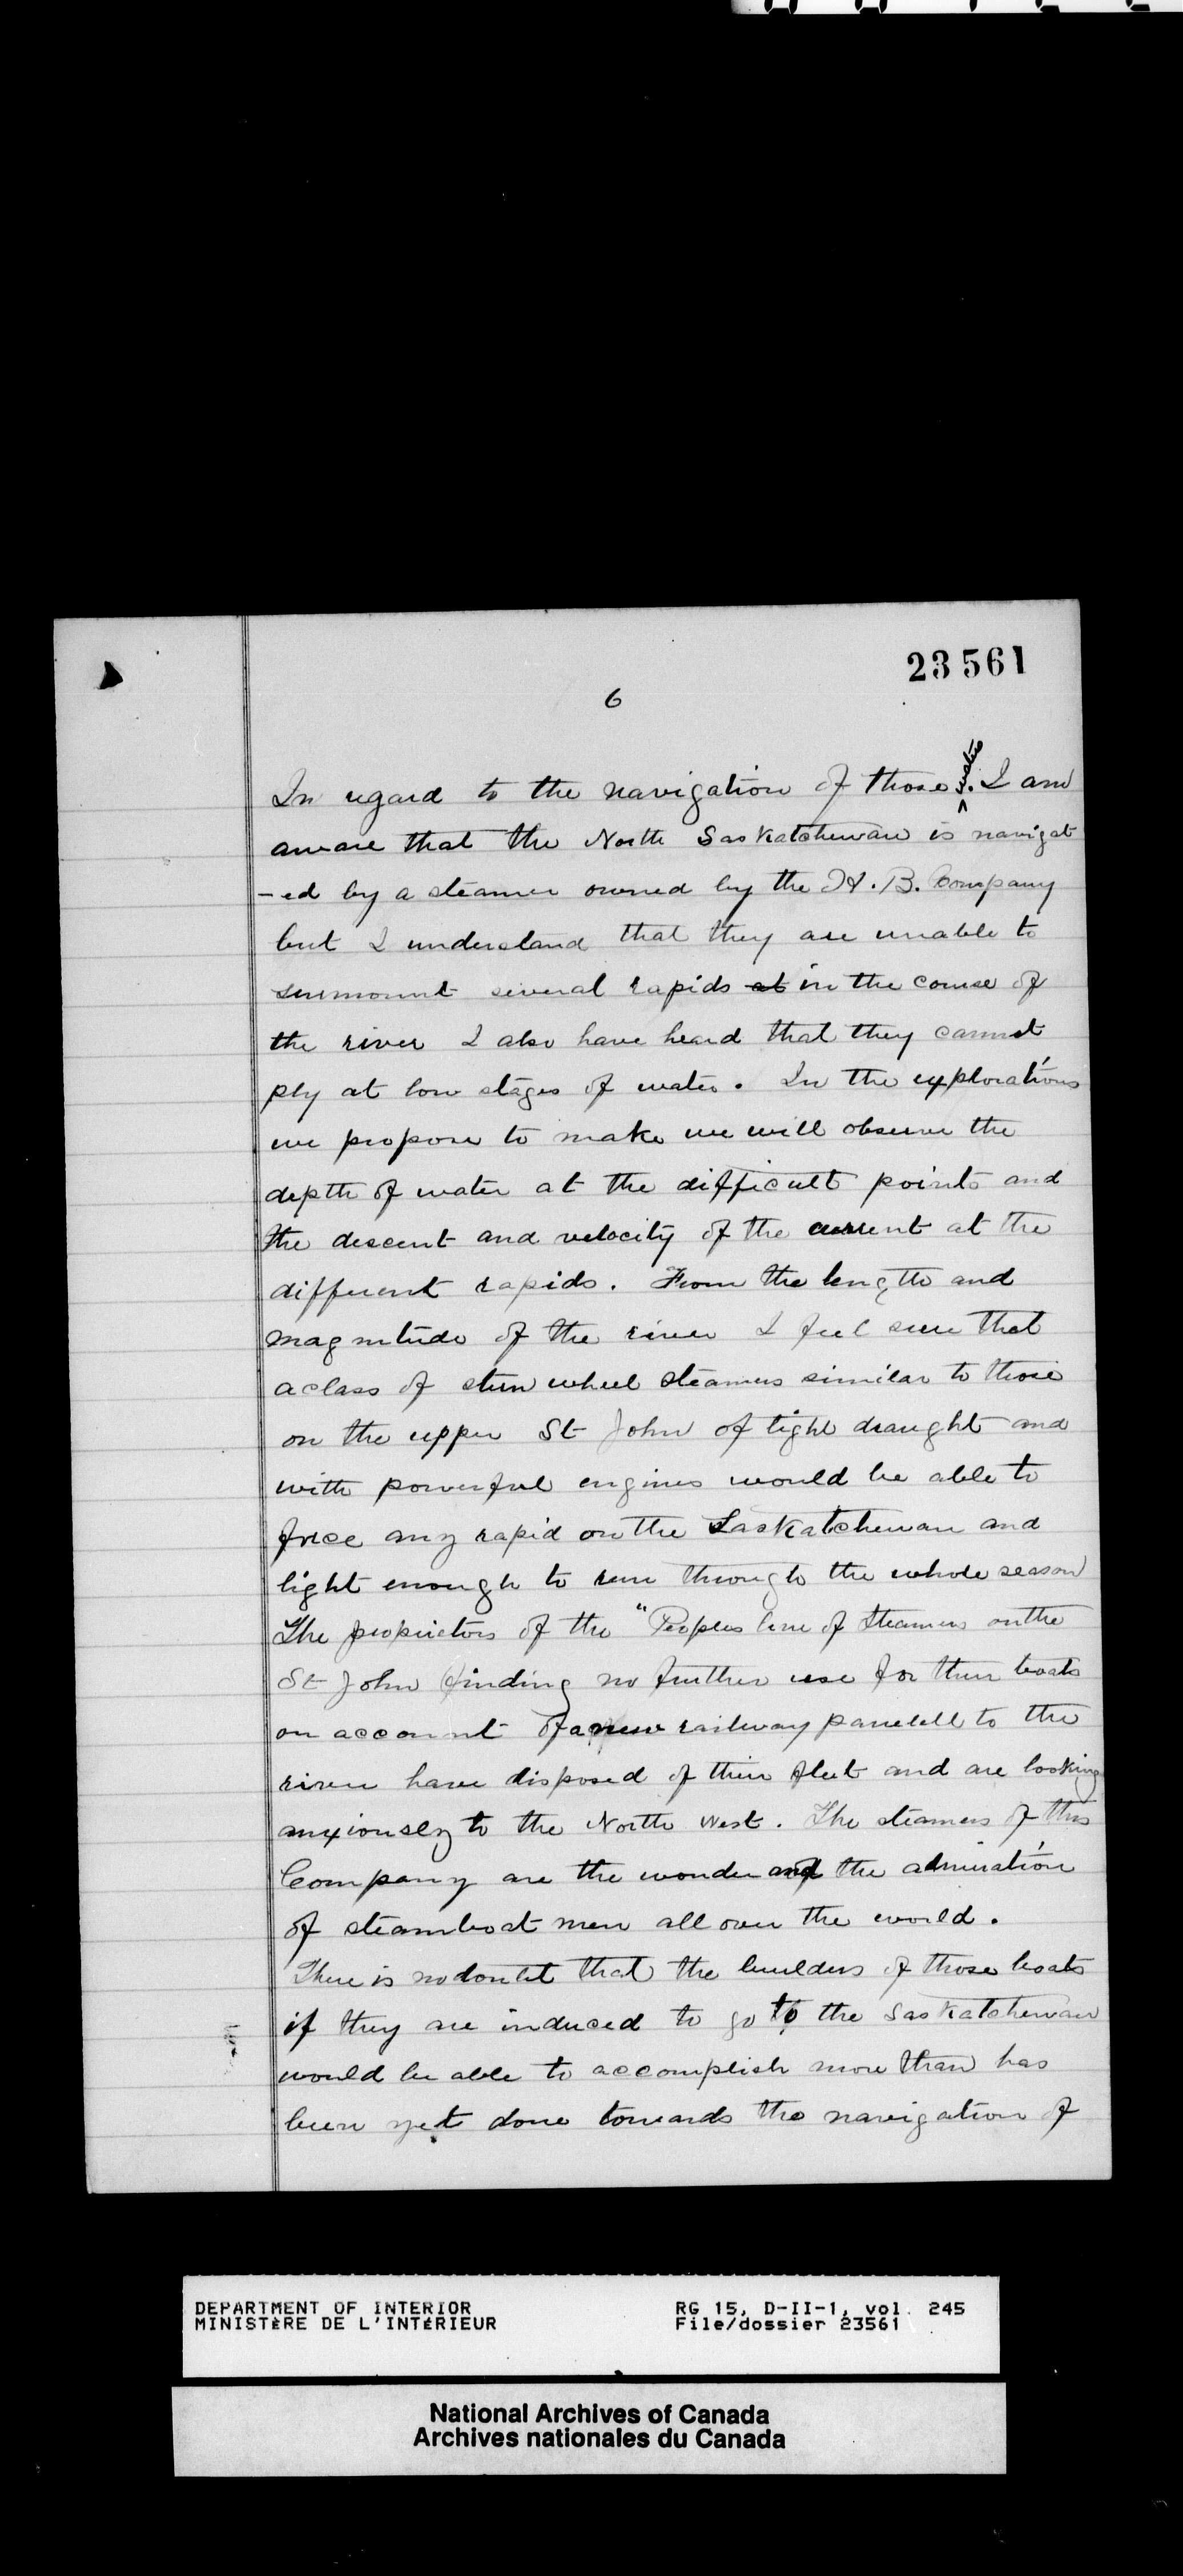 23561
6
In regard to the navigation of those waters. I am
aware that the North Saskatchewan is navigat
-ed by a steamer owned by the H. B. Company
but I understand that they are unable to
surmount several rapids at in the course of
the river I also have heard that they cannot
ply at low stages of water. In the explorations
we propose to make we will observe the
depth of water at the difficult points and
the descent and velocity of the current at the
different rapids. From the length and
magnitude of the river I feel sure that
a class of stern wheel steamers similar to those
on the upper St John of light draught and
with powerful engines would be able to
force any rapid on the Saskatchewan and
light enough to run through the whole season
The proprietors of the "Peoples line of Steamers on the
St John finding no further use for their boats
on account of a new railway paralell to the
river have disposed of their fleet and are looking
anxiously to the North West. The steamers of this
Company are the wonder and the admiration
of steamboat men all over the world.
There is no doubt that the builders of those boats
if they are induced to go to the Saskatchewan
would be able to accomplish more than has
been yet done towards the navigation of
DEPARTMENT OF INTERIOR RG 15, D-II-1, vol. 245
MINISTÈRE DE L'INTÉRIEUR File/dossier 23561
National Archives of Canada
Archives nationales du Canada